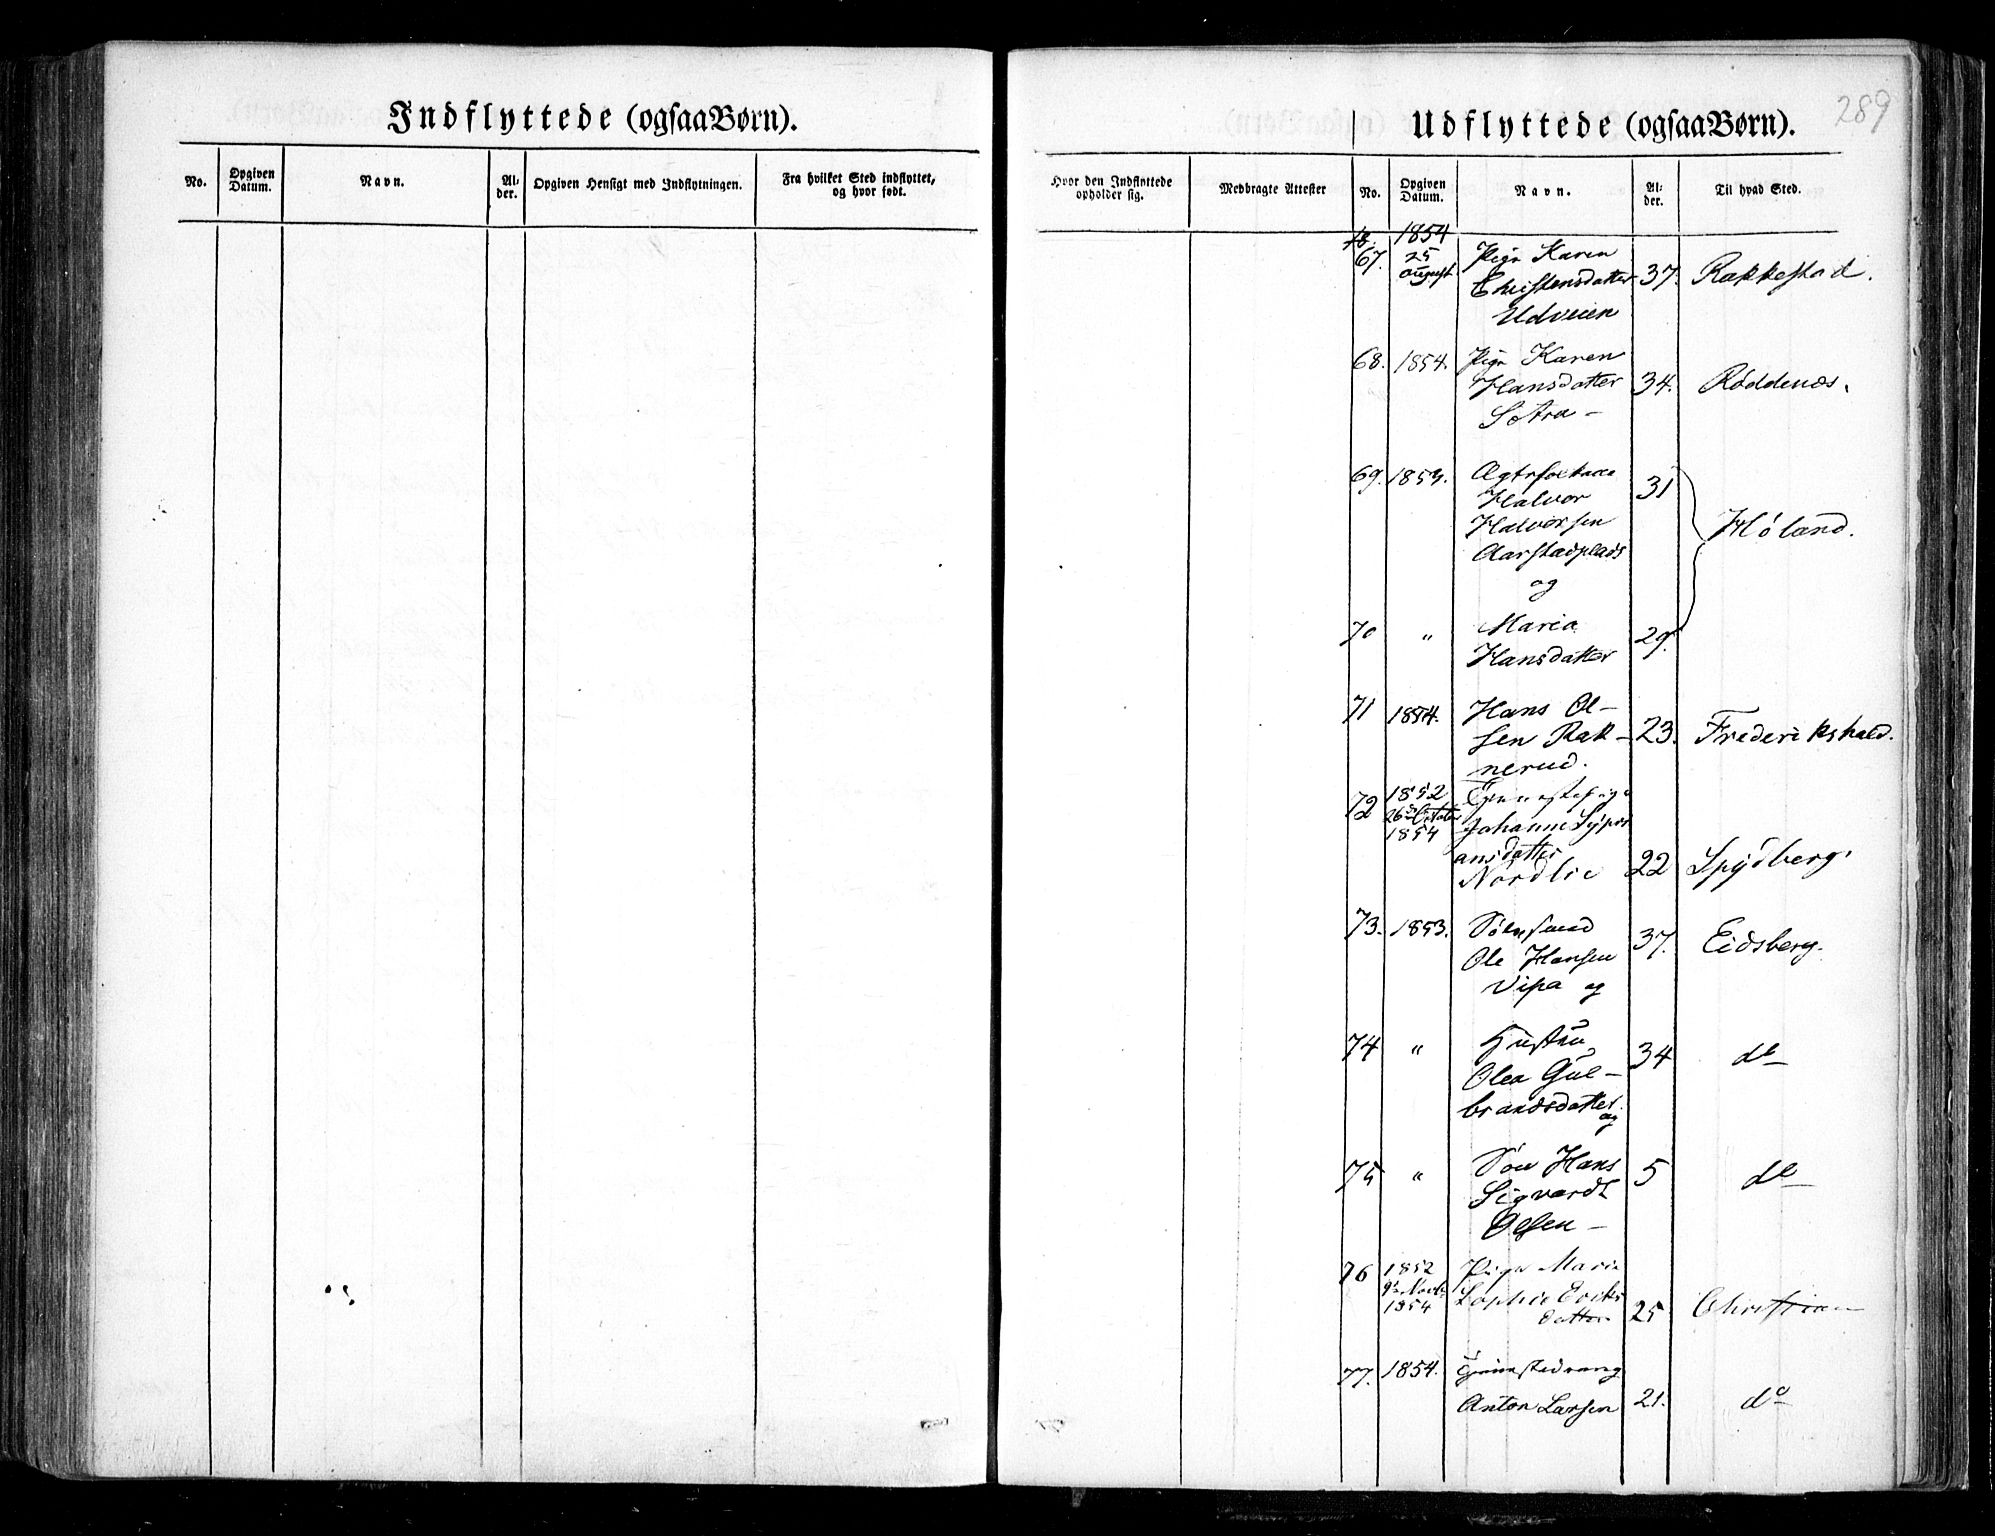 Indflyttede (ogsaa Børn).
No.
Opgiven Datum.
Navn.
Al-der.
Opgiven Hensigt med Indflytningen.
Fra hvilket Sted indflyttet, og hvor født.
289
Udflyttede (ogsaa Børn).
Hvor den Indflyttede opholder sig.
Medbragte Attester
No.
Opgiven Datum.
Navn.
Al-der.
Til hvad Sted.
1854
67. 25 August Pige Karen
Christensdatter 37. Rakkestad.
Udveien
68. 1854. Pige Karen
Hansdatter 34. Røddenæs.
Sotra -
69. 1854. Ægtefolkene 31
Halvor
Halvorsen Høland.
Aarstadplads
og
70 " Maria 29.
Hansdatter
71 1854. Hans Ol-
sen Rak- 23. Frederikshald.
nerud.
72 1852 Tjenestepige
26de October Johanne
1854 ansdatter
Nordlie 22 Spydberg.
73. 1853.
Ole Hansen 37. Eidsberg.
Vipa og
74 " Hustru 34 do
Olea Gul-
brandsdatter
og
75 " Søn Hans 5 do
Sigvardt
Olsen -
76 1852 Pige Marie
9de Novbr Sophie Eriks
1854 datter 25 Christian
77. 1854.
Anton Larsen 21. do